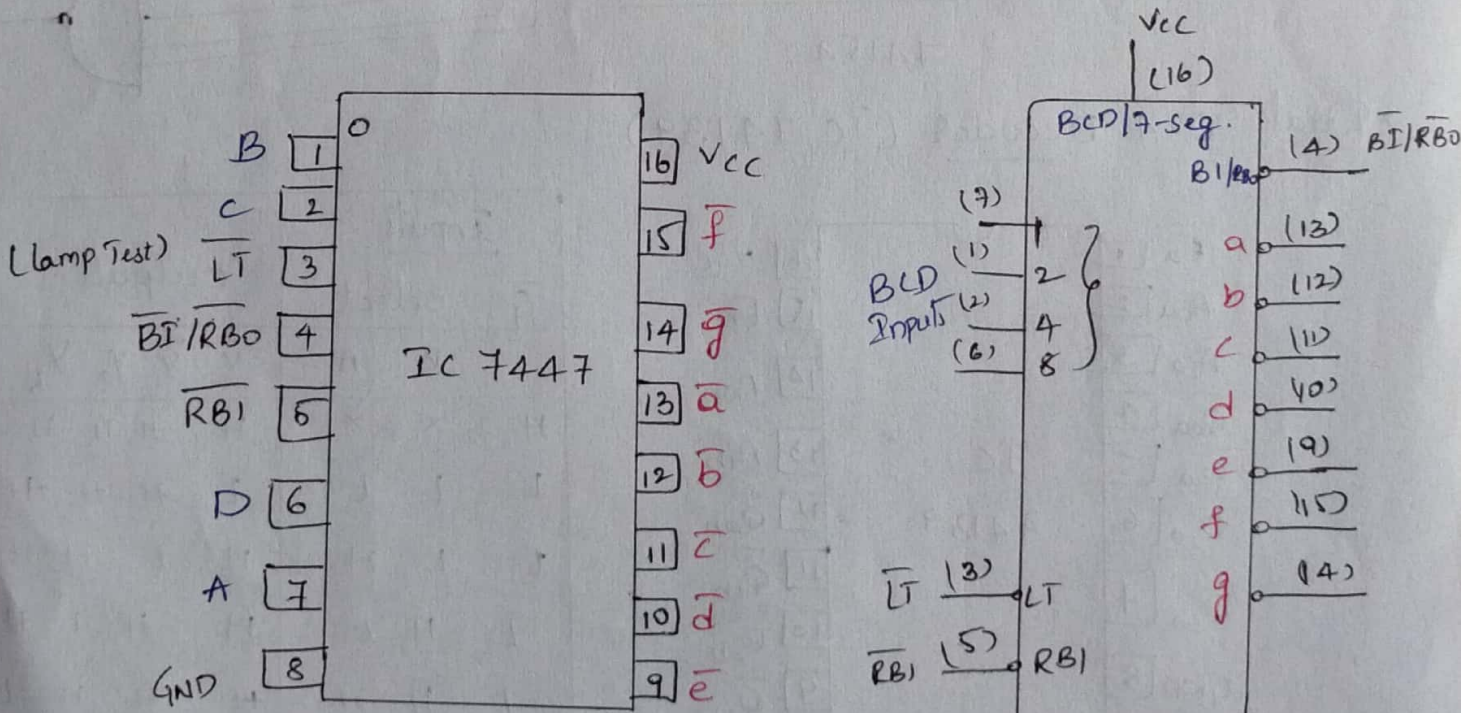 B 1
C 2
(lamp Test) L̅T̅ 3
B̅I̅/R̅B̅O̅ 4
R̅B̅I̅ 5
D 6
A 7
GND 8
IC 7447
16 VCC
15 f̅
14 g̅
13 a̅
12 b̅
11 c̅
10 d̅
9 e̅
VCC
(16)
BCD/7-Seg.
BI/RBO (4) B̅I̅/R̅B̅O̅
BCD
Inputs
(7) 1
(1) 2
(2) 4
(6) 8
a (13)
b (12)
c (11)
d (10)
e (9)
f (15)
g (14)
L̅T̅ (3) LT
R̅B̅I̅ (5) RBI